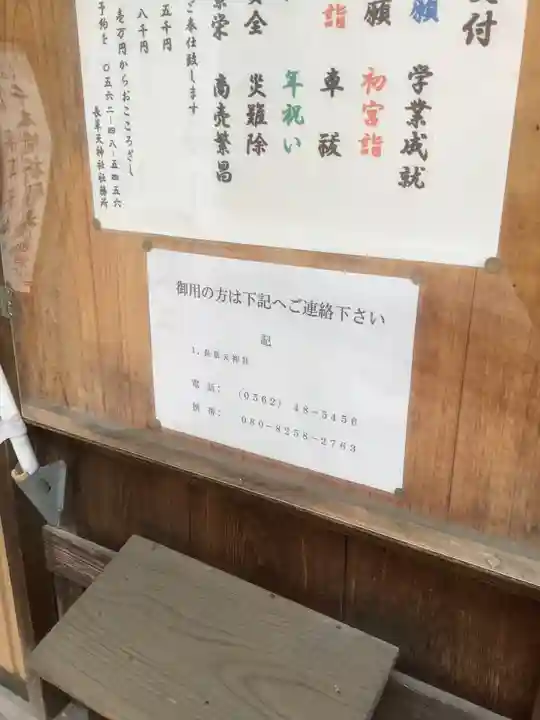 受付
願 学業成就
願 初宮詣
詣 車祓
年祝い
安全 災難除
繁栄 商売繁昌
ご奉仕致します
五千円
八千円
壱万円からおこころざし
予約を 〇五六二-四八-五四五六
長草天神社社務所
御用の方は下記へご連絡下さい
記
1、長草天神社
電話： （0562）48-5456
携帯： 080-8258-2763